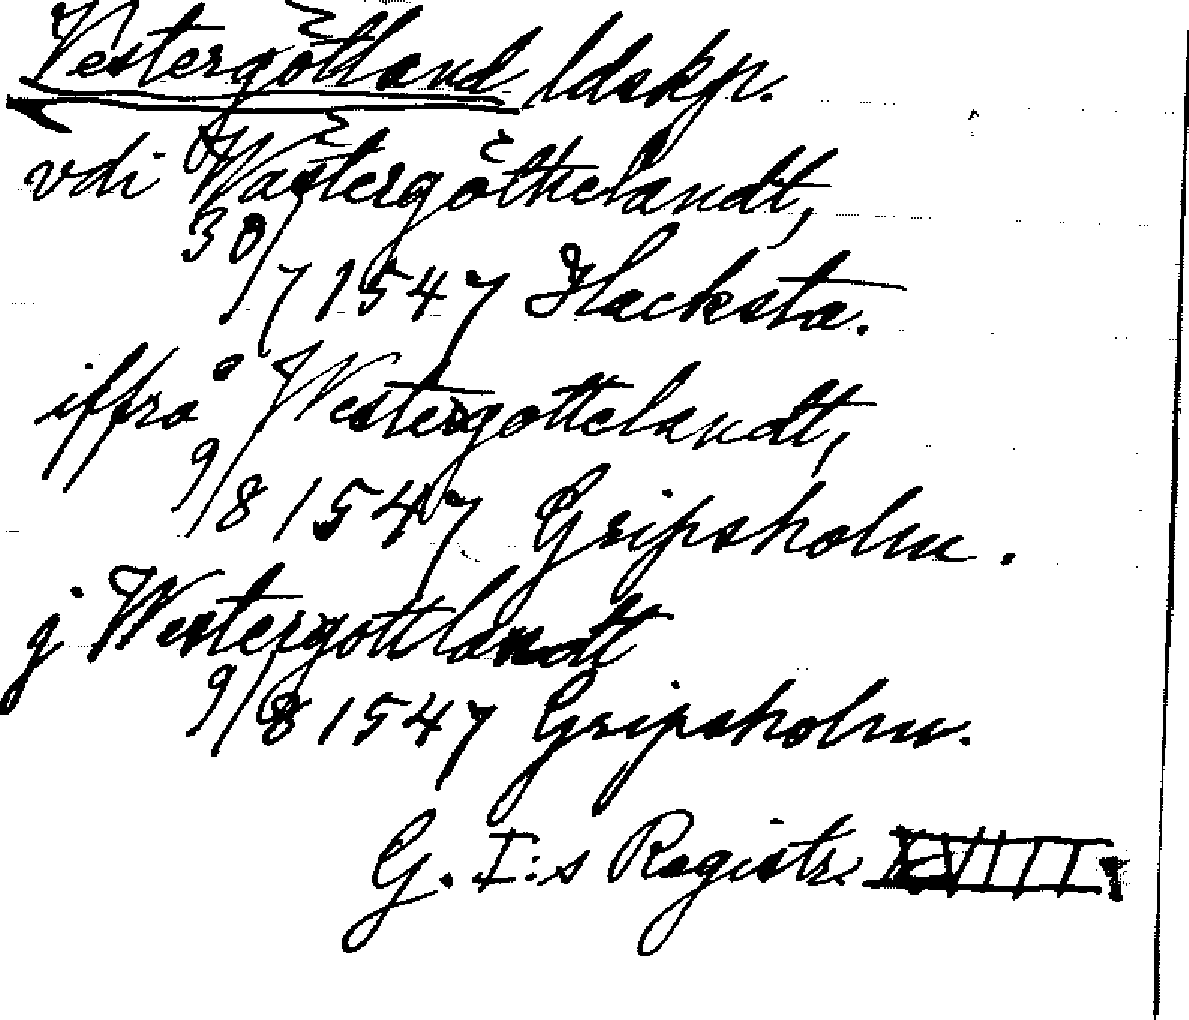 Vestergötland ldskp.
vdi Wästergöthelandt,
30/7 1547 Flacksta.
iffrå Westergöttelandt,
9/8 1547 Gripsholm.
j Westergottlandt
9/8 1547 Gripsholm.
G. I:s Registr.